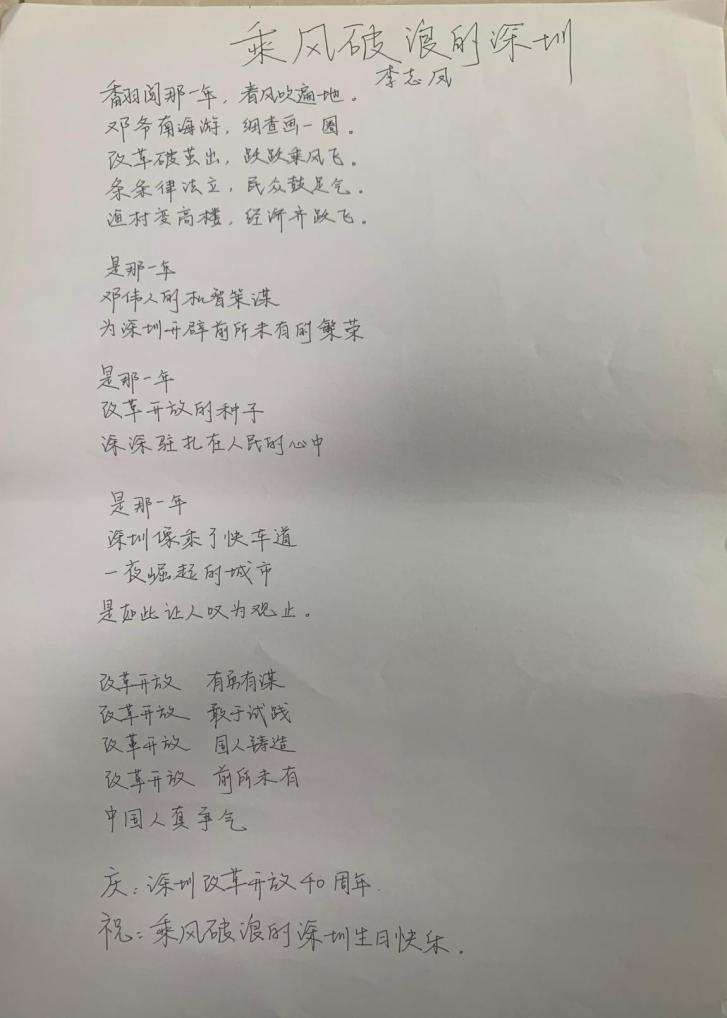 乘风破浪的深圳
李志凤
翻阅那一年，春风吹遍地。
邓爷南海游，细查画一圈。
改革破茧出，跃跃乘风飞。
条条律法立，民众鼓足气。
渔村变高楼，经济齐跃飞。
是那一年
邓伟人的机智策谋
为深圳开辟前所未有的繁荣
是那一年
改革开放的种子
深深驻扎在人民的心中
是那一年
深圳像乘了快车道
一夜崛起的城市
是如此让人叹为观止。
改革开放 有勇有谋
改革开放 敢于试践
改革开放 国人铸造
改革开放 前所未有
中国人真争气
庆：深圳改革开放40周年.
祝：乘风破浪的深圳生日快乐.